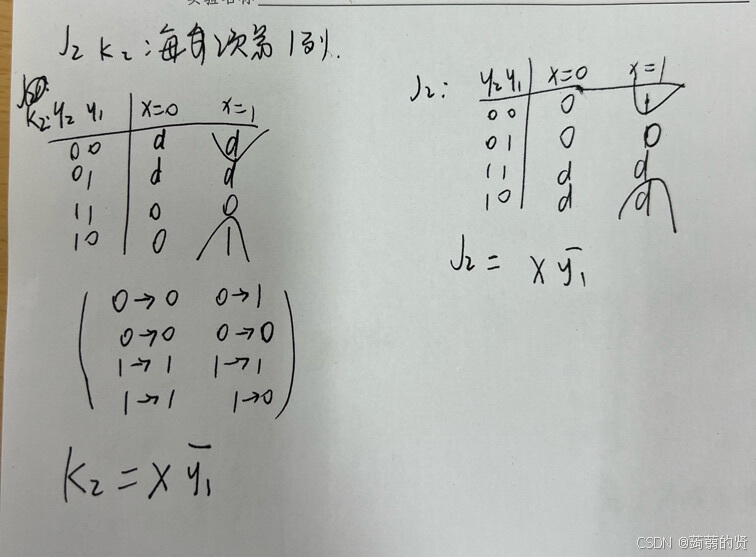 实验名称
J₂ K₂:每自次第1列.
K₂: y₂ y₁ x=0 x=1
00 d d
01 d d
11 0 0
10 0 1
0→0 0→1
0→0 0→0
1→1 1→1
1→1 1→0
K₂ = x y̅₁
J₂: y₂ y₁ x=0 x=1
00 0 1
01 0 0
11 d d
10 d d
J₂ = x y̅₁
CSDN @蒟蒻的贤